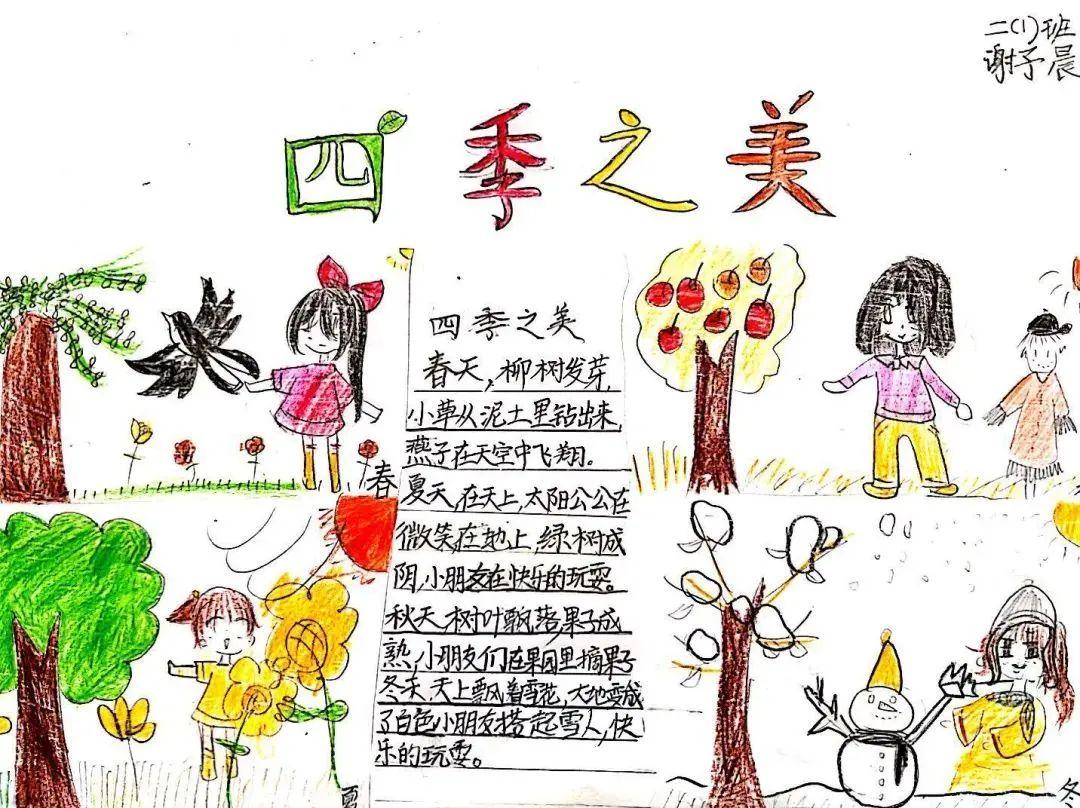 二(1)班
谢予晨
四季之美
四季之美
春天，柳树发芽，
小草从泥土里钻出来，
燕子在天空中飞翔。
夏天，在天上，太阳公公在
微笑在地上，绿树成
阴，小朋友在快乐的玩耍。
秋天，树叶飘落，果子成
熟，小朋友们在果园里摘果子
冬天，天上飘着雪花，大地变成
了白色小朋友搭起雪人，快
乐的玩耍。
春
夏
冬